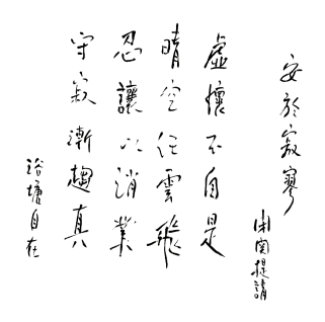 安於寂寥
閉關提請
虛懷不自是
晴空任雲飛
忍讓以消業
守寂漸趨真
浴塘自在